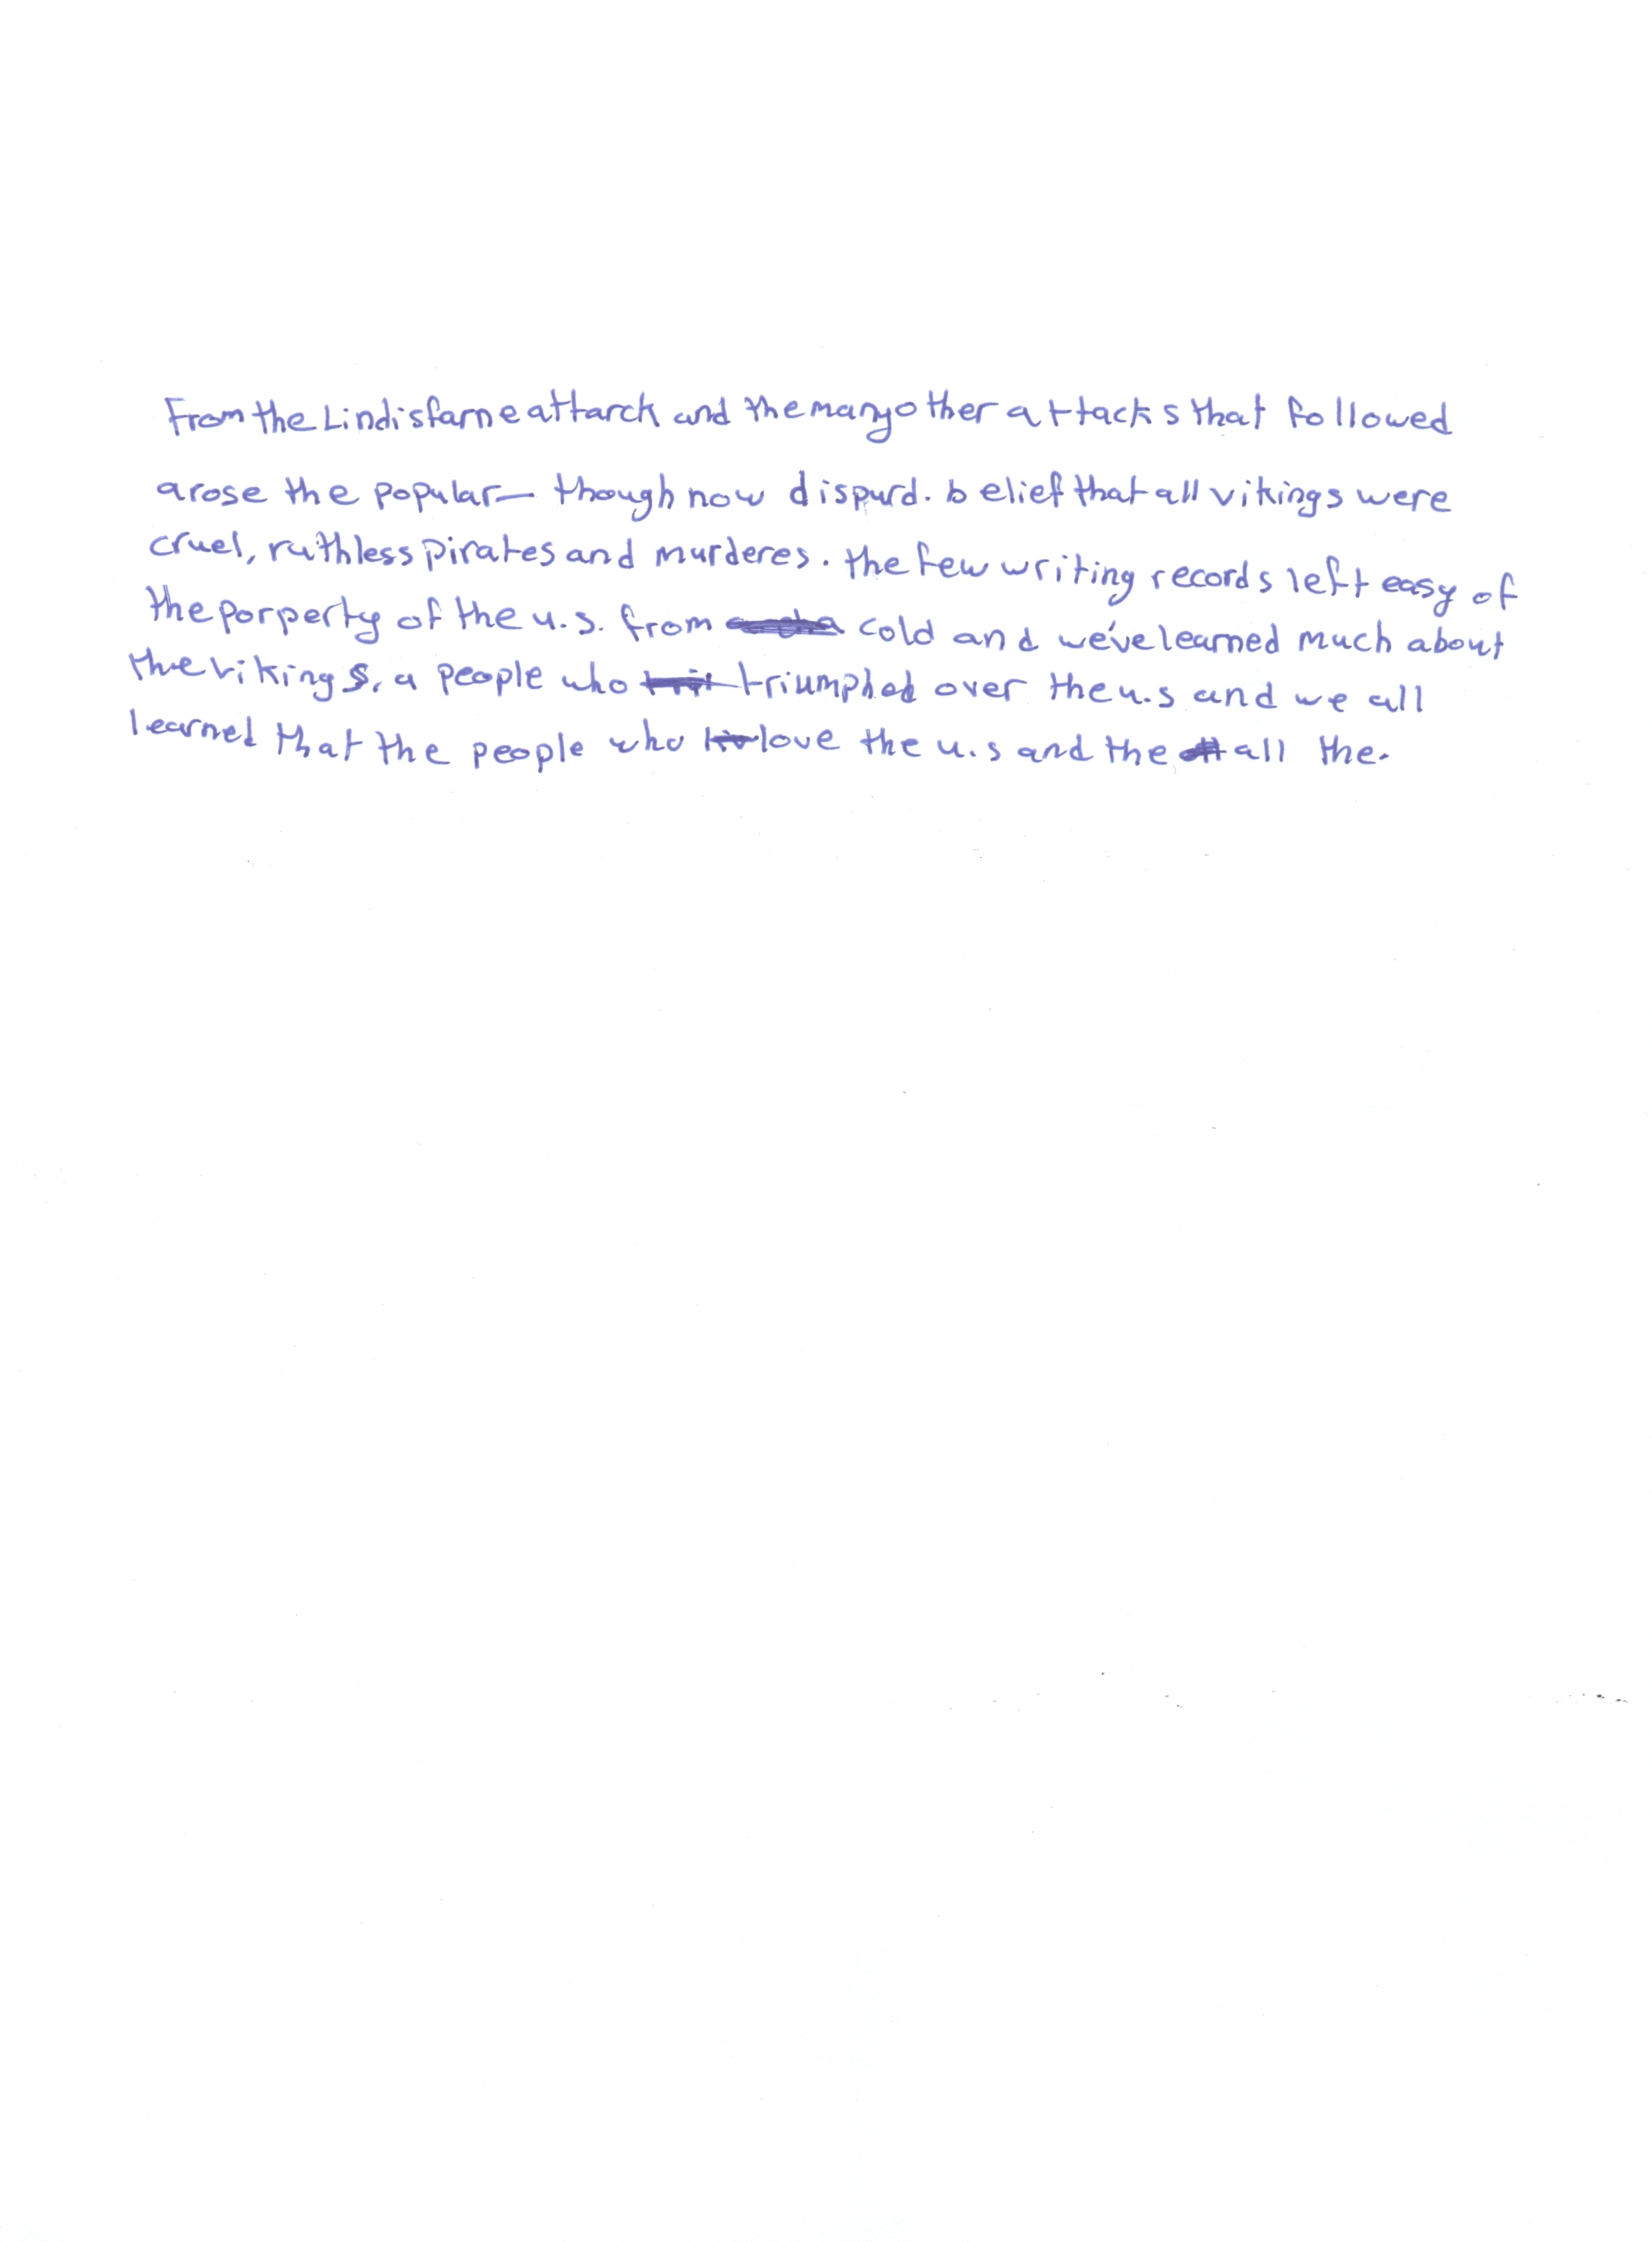 From the Lindisfarne attarck and the many other attacks that followed
arose the popular— though now dispurd. belief that all vikings were
cruel, ruthless pirates and murderes. the few writing records left easy of
the porperty of the u.s. from cold and we've learned much about
the vikings, a people who triumphed over the u.s and we all
learned that the people who love the u.s and the all the.